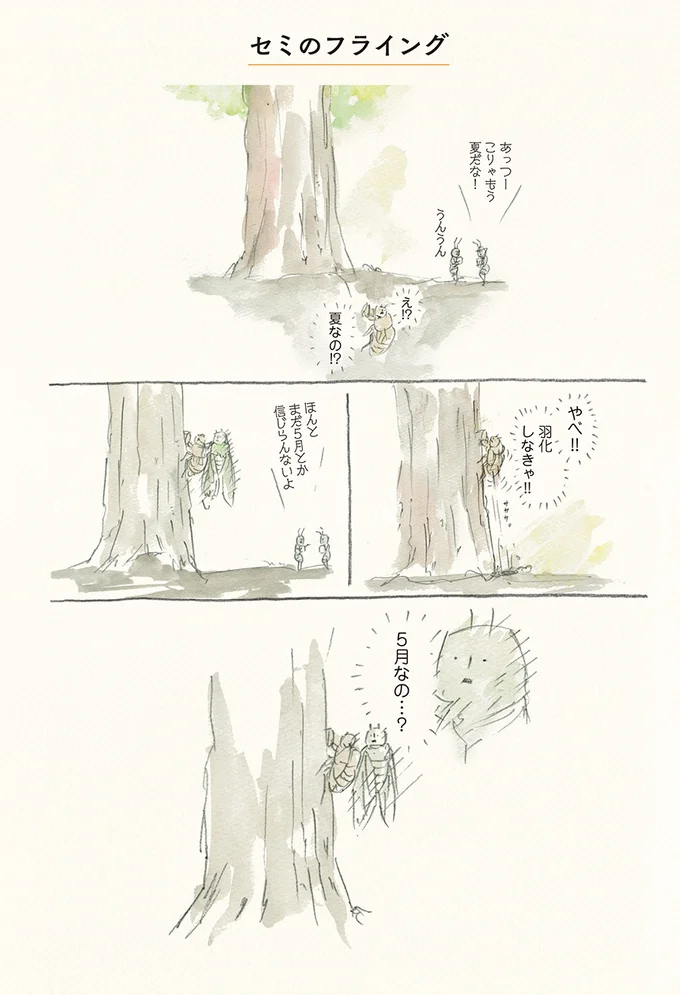 セミのフライング
あっつー
こりゃもう
夏だな！
うんうん
え!?
夏なの!?
やべ!!
羽化
しなきゃ!!
ササササ。
ほんと
まだ5月とか
信じらんないよ
5月なの…?